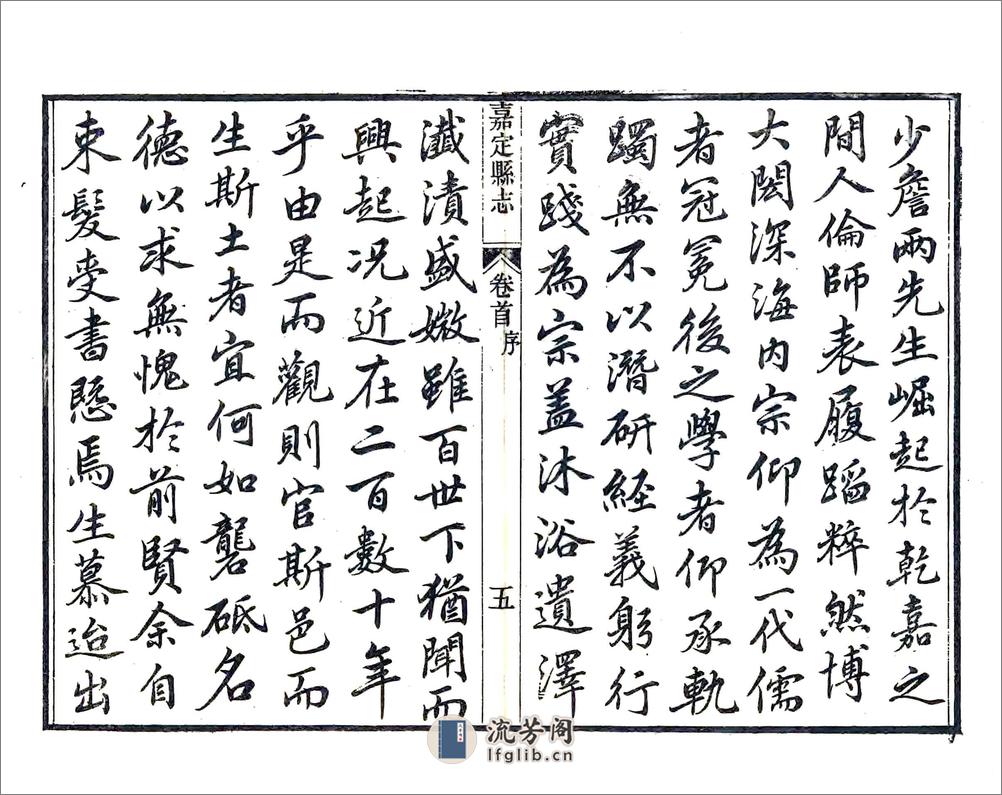 少詹兩先生崛起於乾嘉之
間人倫師表履蹈粹然博
大閎深海内宗仰為一代儒
者冠冕後之學者仰承軌
躅無不以潛研經義躬行
實踐為宗蓋沐浴遺澤
嘉定縣志
卷首
序
五
瀸漬盛媺雖百世下猶聞而
興起况近在二百數十年
乎由是而觀則官斯邑而
生斯土者宜何如礱砥名
德以求無愧於前賢余自
束髮受書懸焉生慕迨出
流芳阁
lfglib.cn